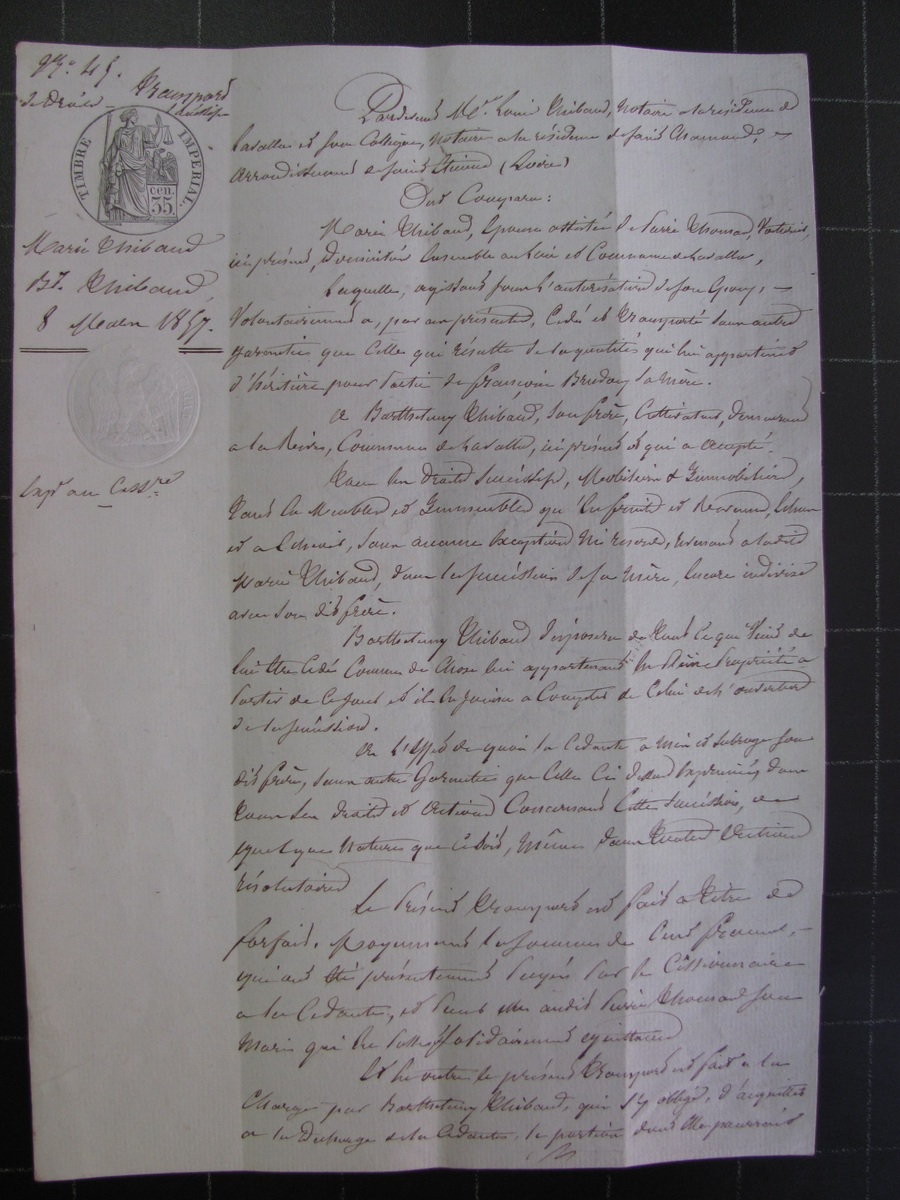 45.
Transport
de Droits
TIMBRE IMPERIAL.
cen.
35.
Marie Thibaud
Bt. Thibaud
8 1857.
Pardevant Me. Louis Thibaud, Notaire à la résidence de
Lavalla et son Collègue, Notaire à la résidence de Saint Chamond,
arrondissement de Saint Etienne (Loire)
Est Comparu:
Marie Thibaud, Epouse assistée de Pierre
ici présent, ensemble au lieu et Commune de Lavalla,
Laquelle, agissant sous l'autorisation de son
Volontairement a, par ces présentes, Cédé et Transporté sans autre
garantie que Celle qui résulte de la qualité qui lui appartient
d'héritière pour partie de Françoise sa mère.
A Barthelemy Thibaud, son frère, Cultivateur, demeurant
à la Commune de Lavalla, ici présent et qui a accepté.
Tous les Droits Successifs, Mobiliers & Immobiliers,
Tant les Meubles et Immeubles qu'en fruits et Revenus, échus
et à échoir, sans aucune Exception ni réserve, revenant à ladite
Marie Thibaud, dans la succession de sa mère, Encore indivise
avec son dit frère.
Barthelemy Thibaud disposera de Tout ce que Vient de
lui être cédé Comme de Chose lui appartenant En pleine Propriété à
partir de ce jour et il en jouira à Compter de Celui de l'ouverture
de la succession.
A l'Effet de quoi la Cédante a mis et subrogé son
dit frère, sans autre Garantie que Celle Ci dessus Exprimée, dans
Tous ses droits et Actions Concernant Cette Succession, de
quelque Nature que ce soit, Même dans Toutes Actions
résolutoires
Le Présent Transport est fait à Titre de
forfait, Moyennant la somme de Cent francs,
qui ont été présentement payés par le Cessionnaire
à la Cédante, et audit Pierre son
Mari qui En solidairement quittance
Et En outre le présent Transport est fait à la
Charge par Barthelemy Thibaud, qui s'y oblige, d'acquitter
à la Décharge de la Cédante la portion dont Elle pourrait